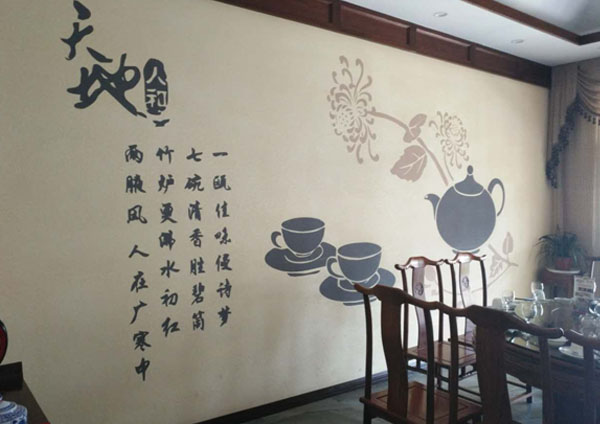 天地
人和
一瓯佳味侵诗梦
七碗清香胜碧筒
竹炉更沸水初红
两腋风人在广寒中